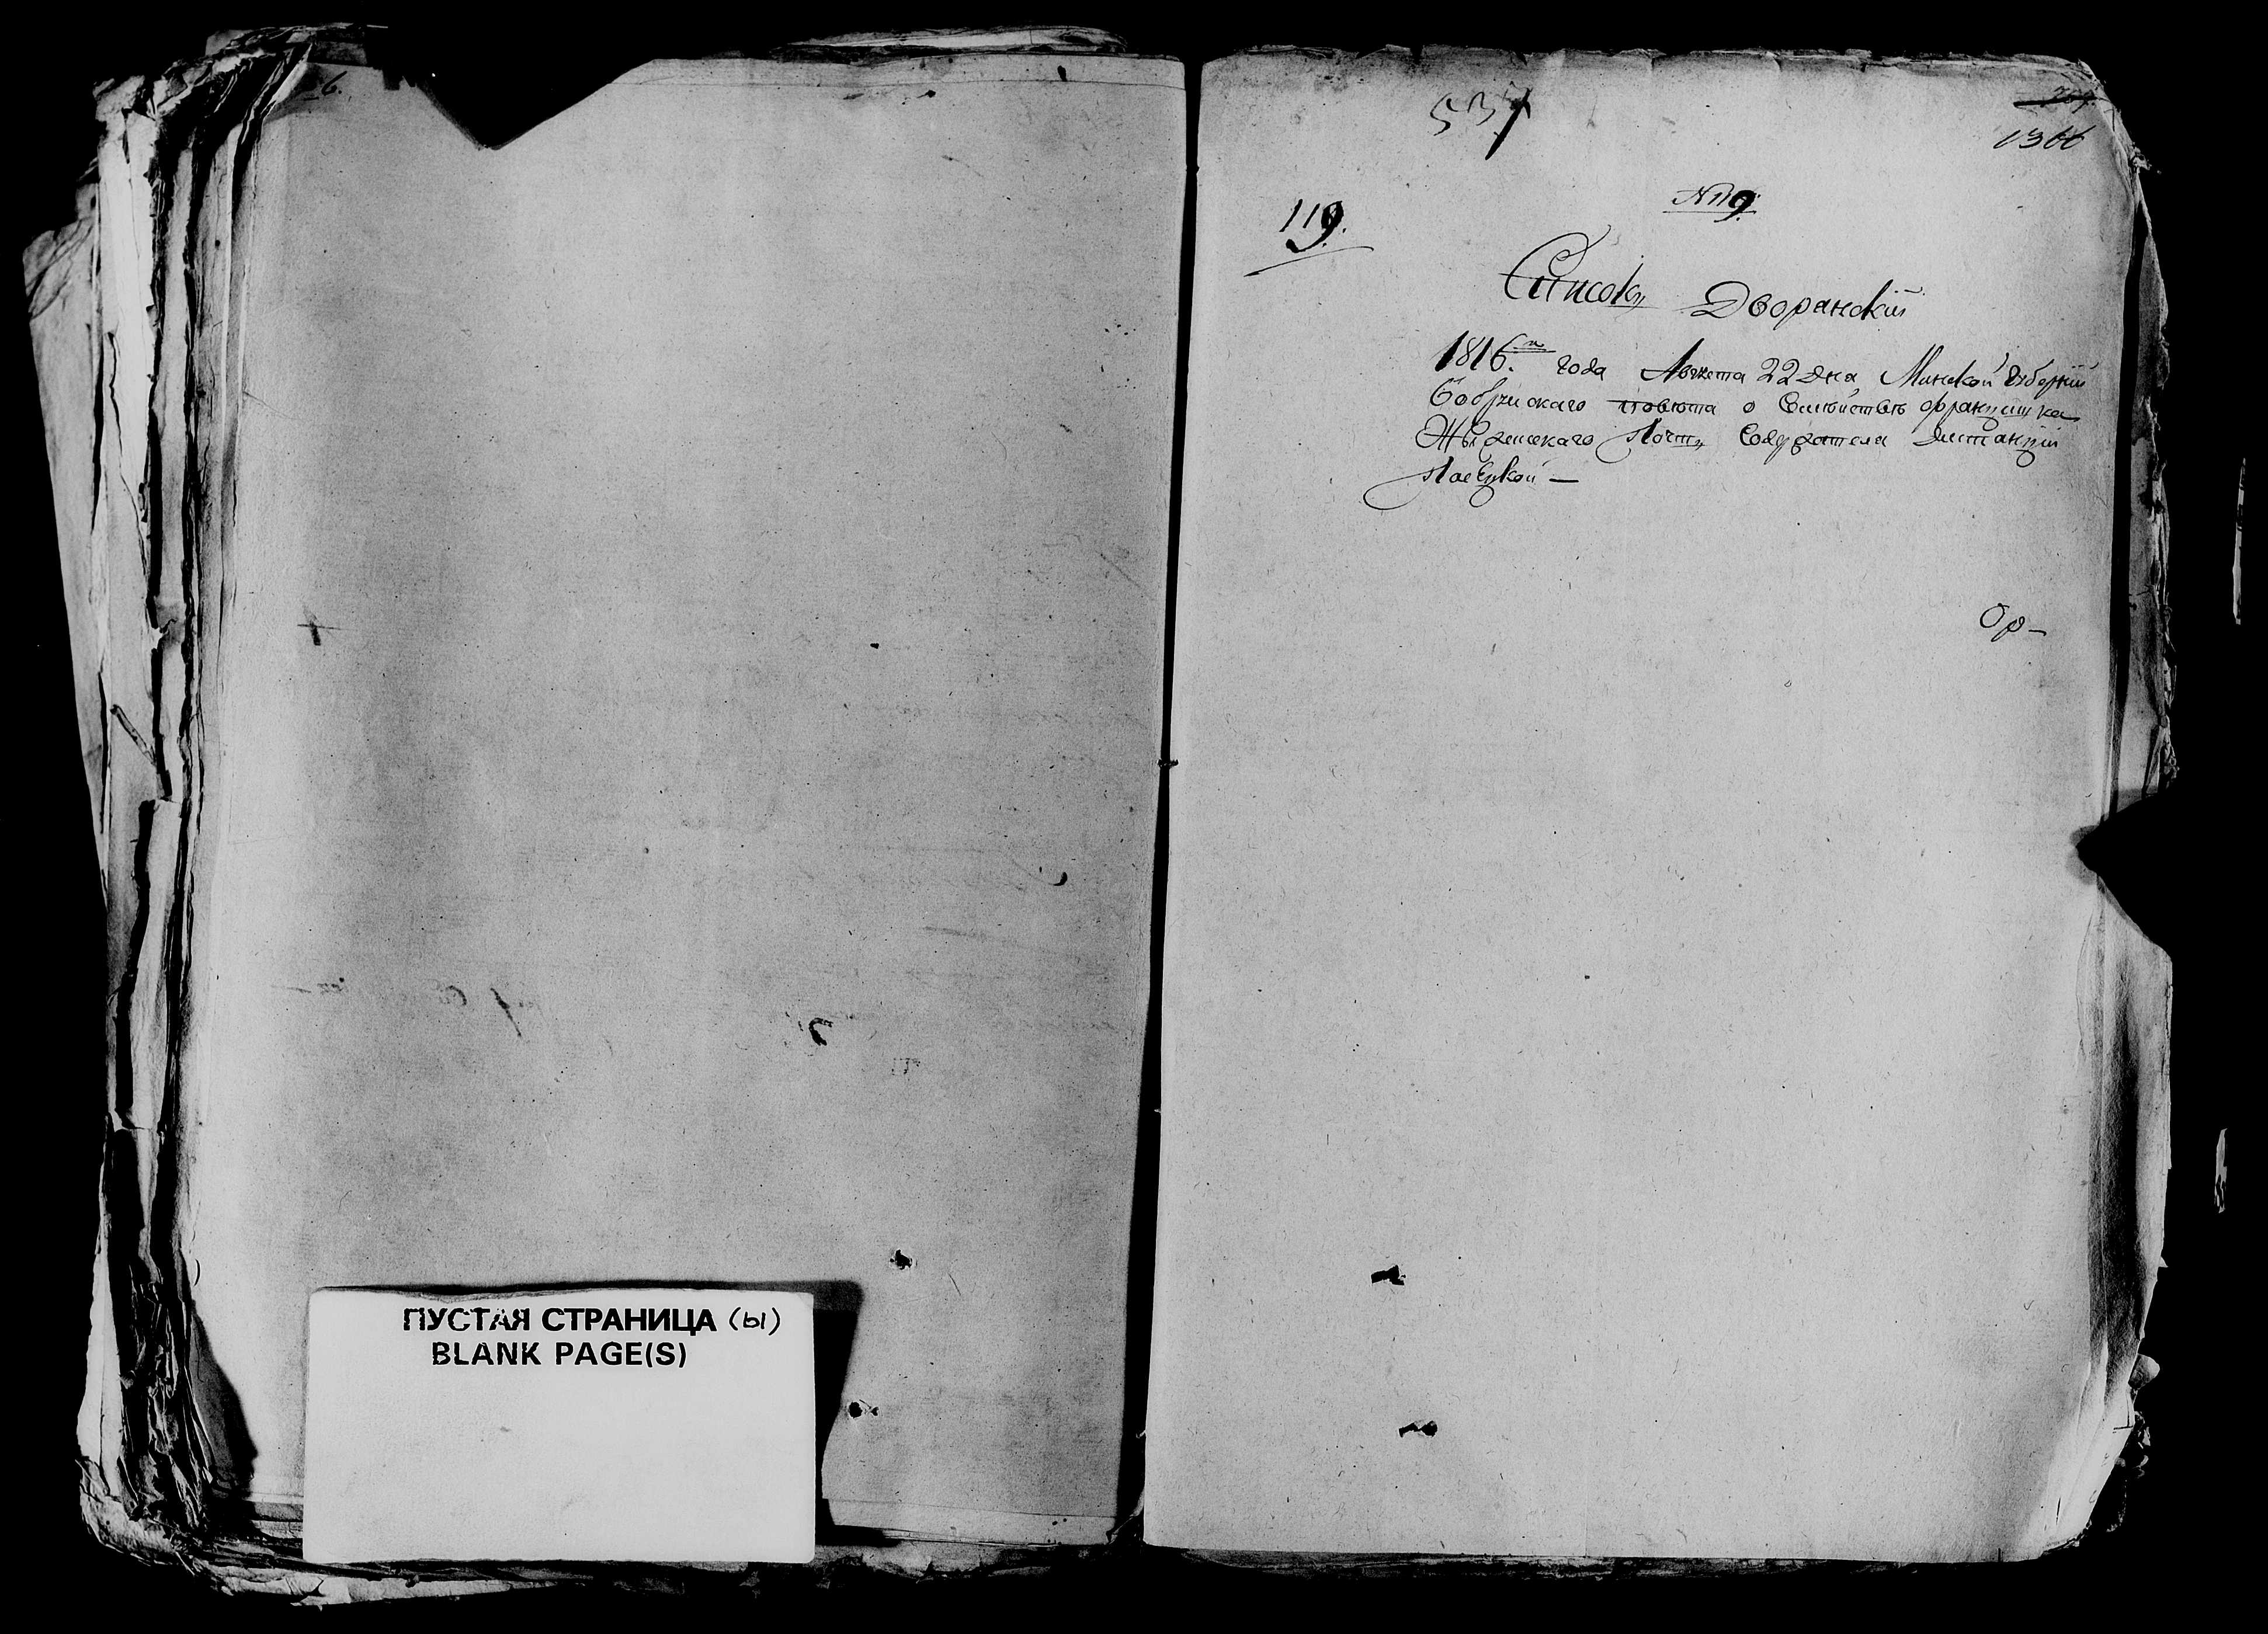 6.
ПУСТАЯ СТРАНИЦА (ы)
BLANK PAGE(S)
537
1366
119.
№ 119.
Списокъ Дворанскій
1816.го года Августа 22 дня Минской Губерніи
Бобруискаго повѣта о Семѣйствѣ Францишка
Почтъ Содержателя дистанціи
Ор-